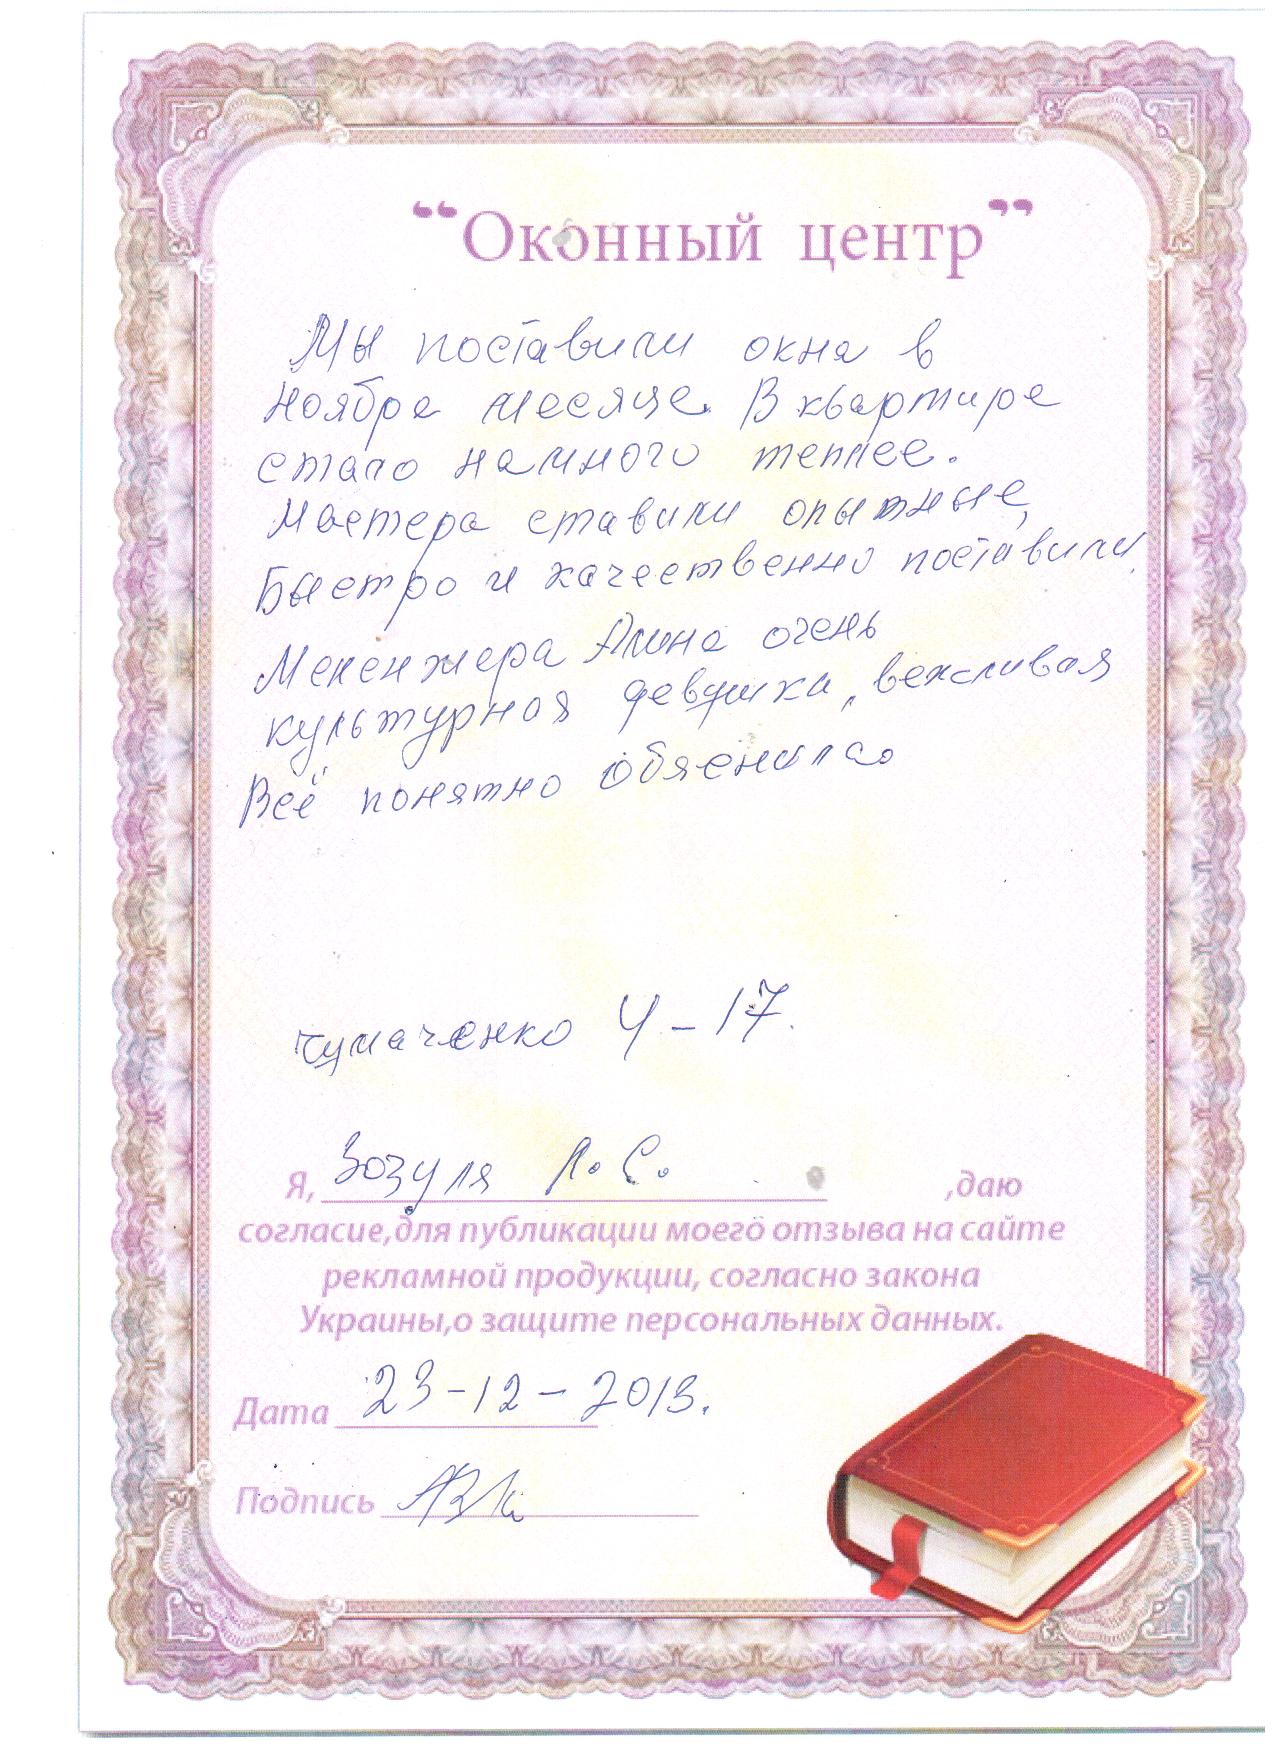 “Оконный центр”
Мы поставили окна в
ноябре месяце. В квартире
стало намного теплее.
Мастера ставили опытные,
Быстро и качественно поставили.
Мененжера Алина очень
культурная девушка, вежливая
Всё понятно обяснила.
Чумаченко 4-17.
Я, Зозуля Л. С. ,даю
согласие,для публикации моего отзыва на сайте
рекламной продукции, согласно закона
Украины,о защите персональных данных.
Дата 23-12-2013.
Подпись